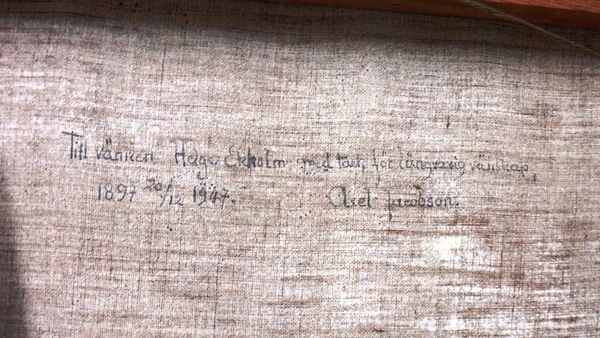 Till vännen Helge Ekholm med tack för långvarig vänskap,
1897 20/12 1947. Axel Jacobson.